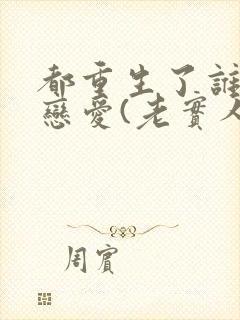 都重生了誰
戀愛(老實人
周賓